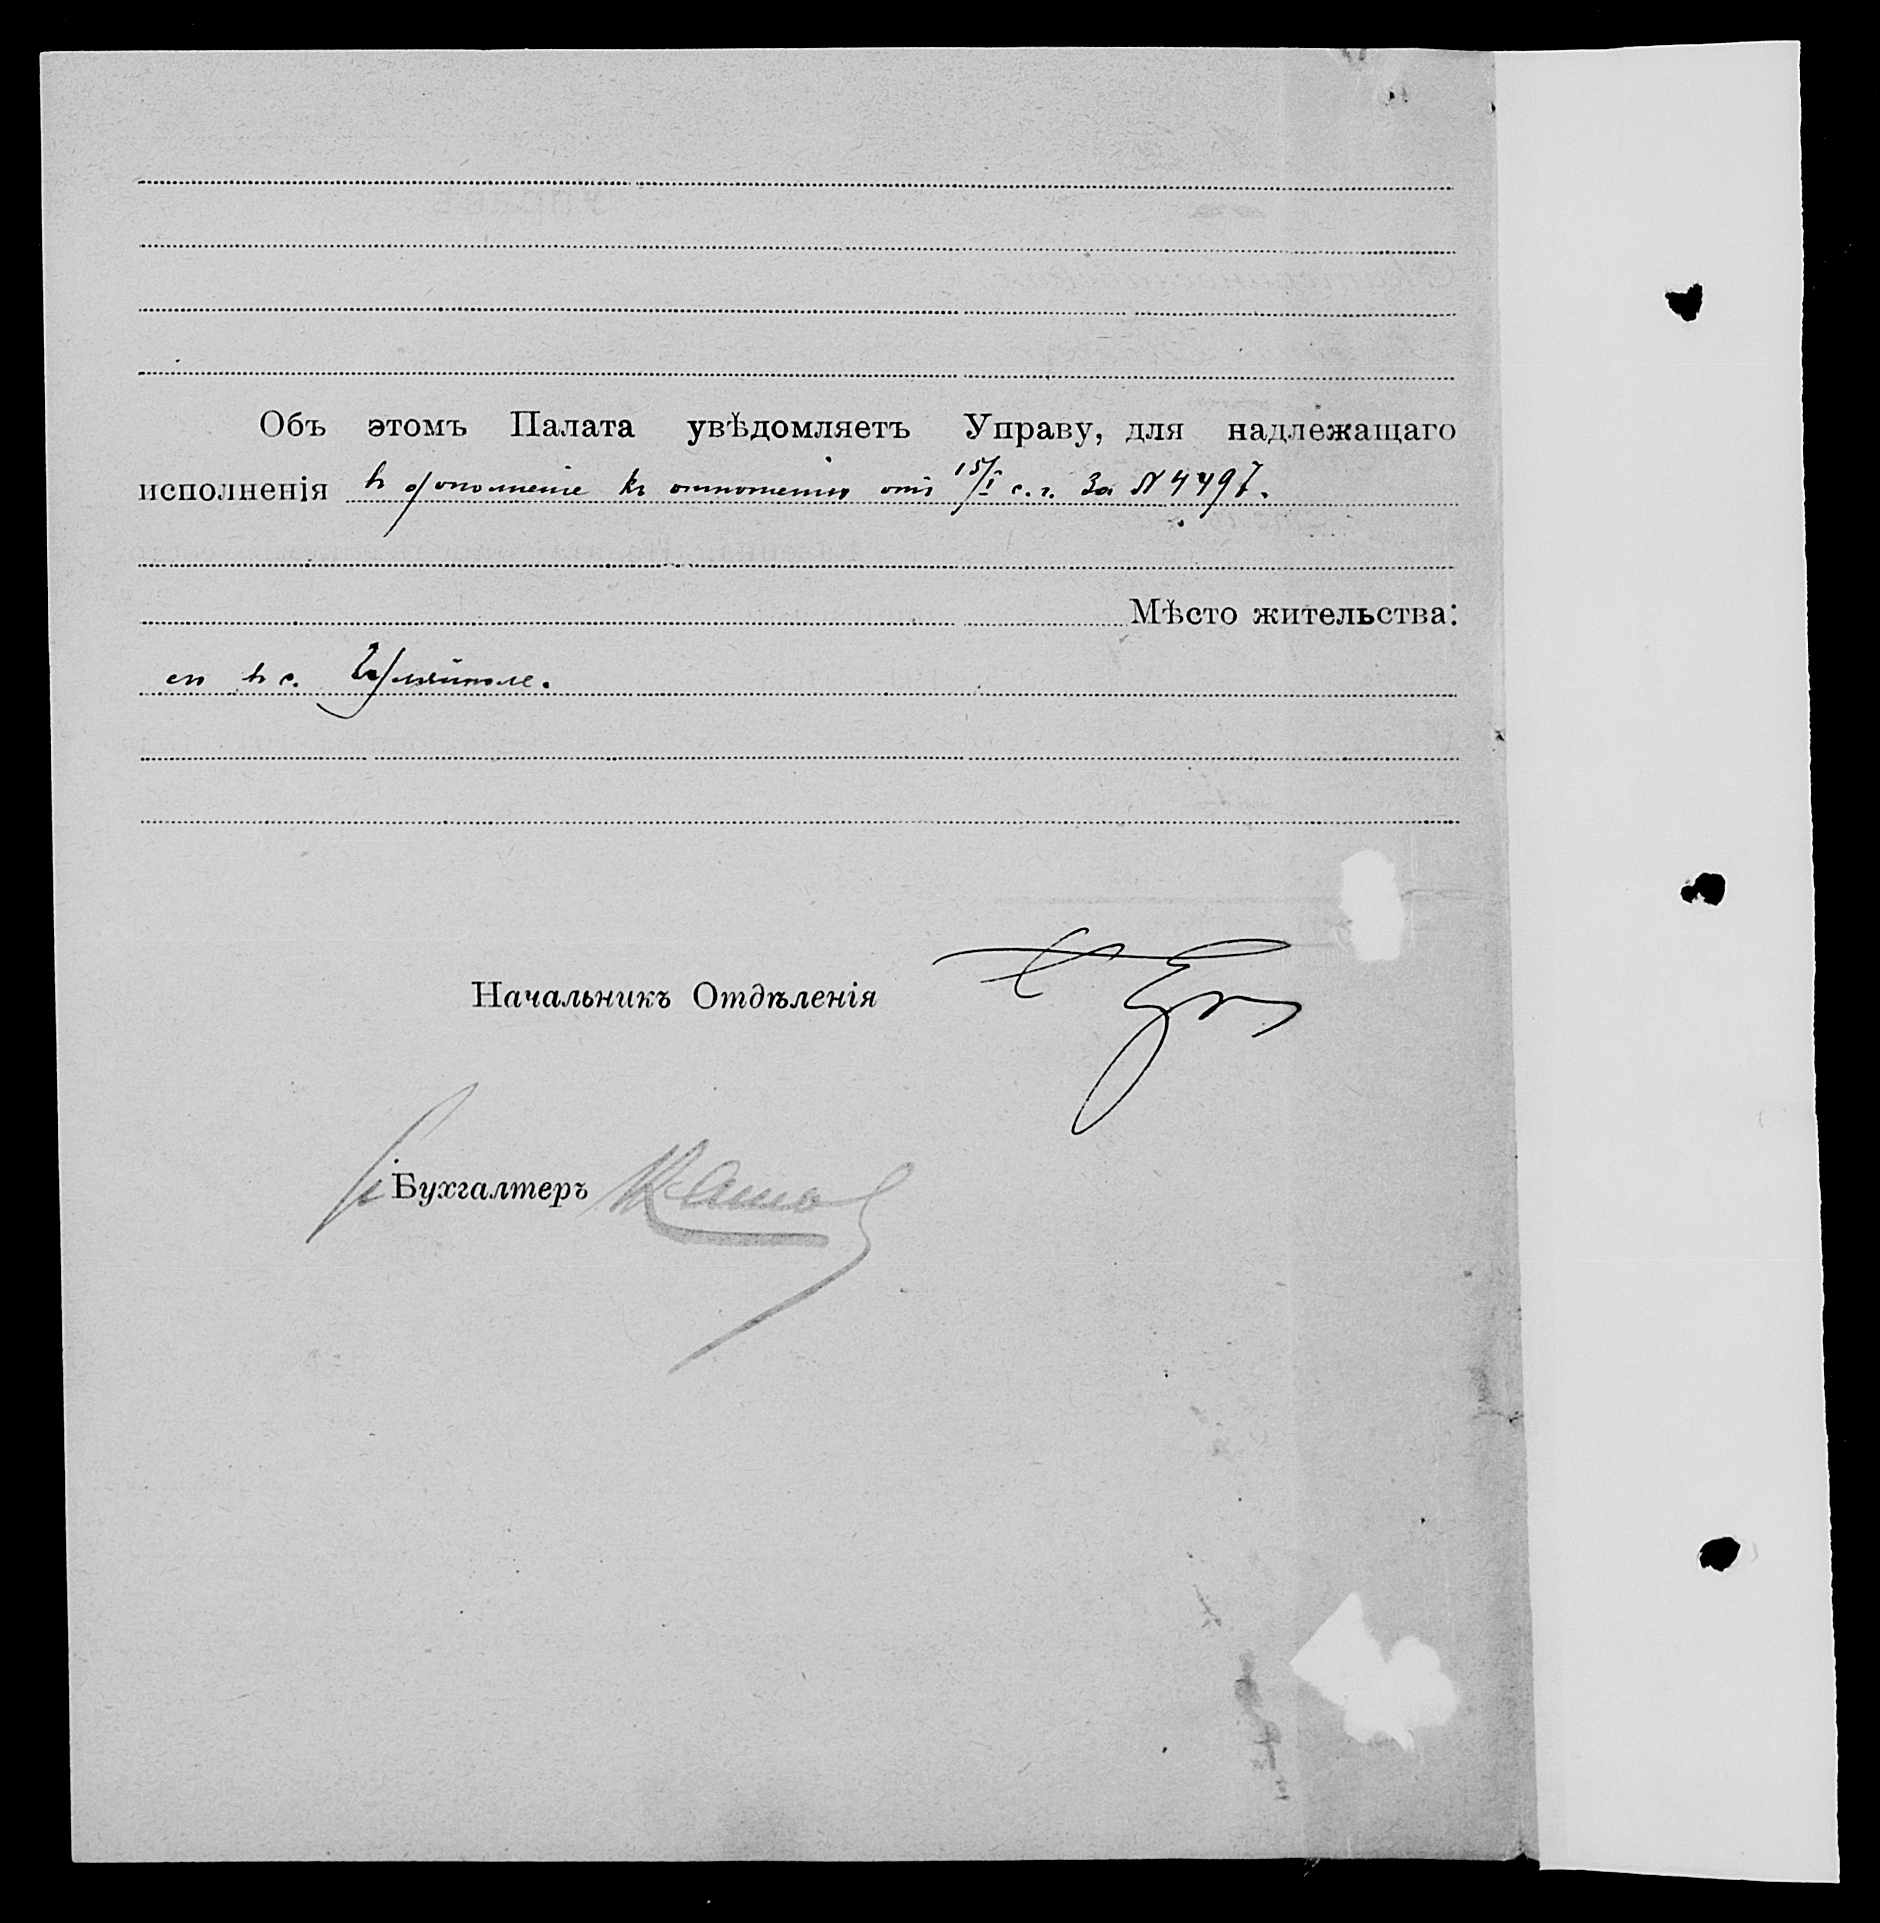 Объ этомъ Палата увѣдомляетъ Управу, для надлежащаго
исполненія въ дополненіе къ отношенію отъ 15/I с. г. за № 4497.
Мѣсто жительства:
въ с.
Начальникъ Отдѣленія
Бухгалтеръ